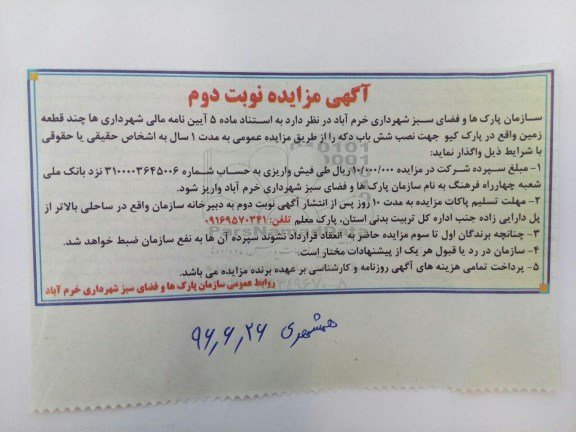 آگهی مزایده نوبت دوم
سازمان پارک ها و فضای سبز شهرداری خرم آباد در نظر دارد به استناد ماده ۵ آیین نامه مالی شهرداری ها چند قطعه
زمین واقع در پارک کیو جهت نصب شش باب دکه را از طریق مزایده عمومی به مدت ۱ سال به اشخاص حقیقی یا حقوقی
با شرایط ذیل واگذار نماید:
۱- مبلغ سپرده شرکت در مزایده ۱۰/۰۰۰/۰۰۰ ریال طی فیش واریزی به حساب شماره ۳۱۰۰۰۰۳۶۴۵۰۰۶ نزد بانک ملی
شعبه چهارراه فرهنگ به نام سازمان پارک ها و فضای سبز شهرداری خرم آباد واریز شود.
۲- مهلت تسلیم پاکات مزایده به مدت ۱۰ روز پس از انتشار آگهی نوبت دوم به دبیرخانه سازمان واقع در ساحلی بالاتر از
پل دارایی زاده جنب اداره کل تربیت بدنی استان، پارک معلم تلفن: ۰۹۱۶۹۵۷۰۳۴۱
۳- چنانچه برندگان اول تا سوم مزایده حاضر به انعقاد قرارداد نشوند سپرده آن ها به نفع سازمان ضبط خواهد شد.
۴- سازمان در رد یا قبول هر یک از پیشنهادات مختار است.
۵- پرداخت تمامی هزینه های آگهی روزنامه و کارشناسی بر عهده برنده مزایده می باشد.
روابط عمومی سازمان پارک ها و فضای سبز شهرداری خرم آباد
همشهری ۹۶٫۶٫۲۶